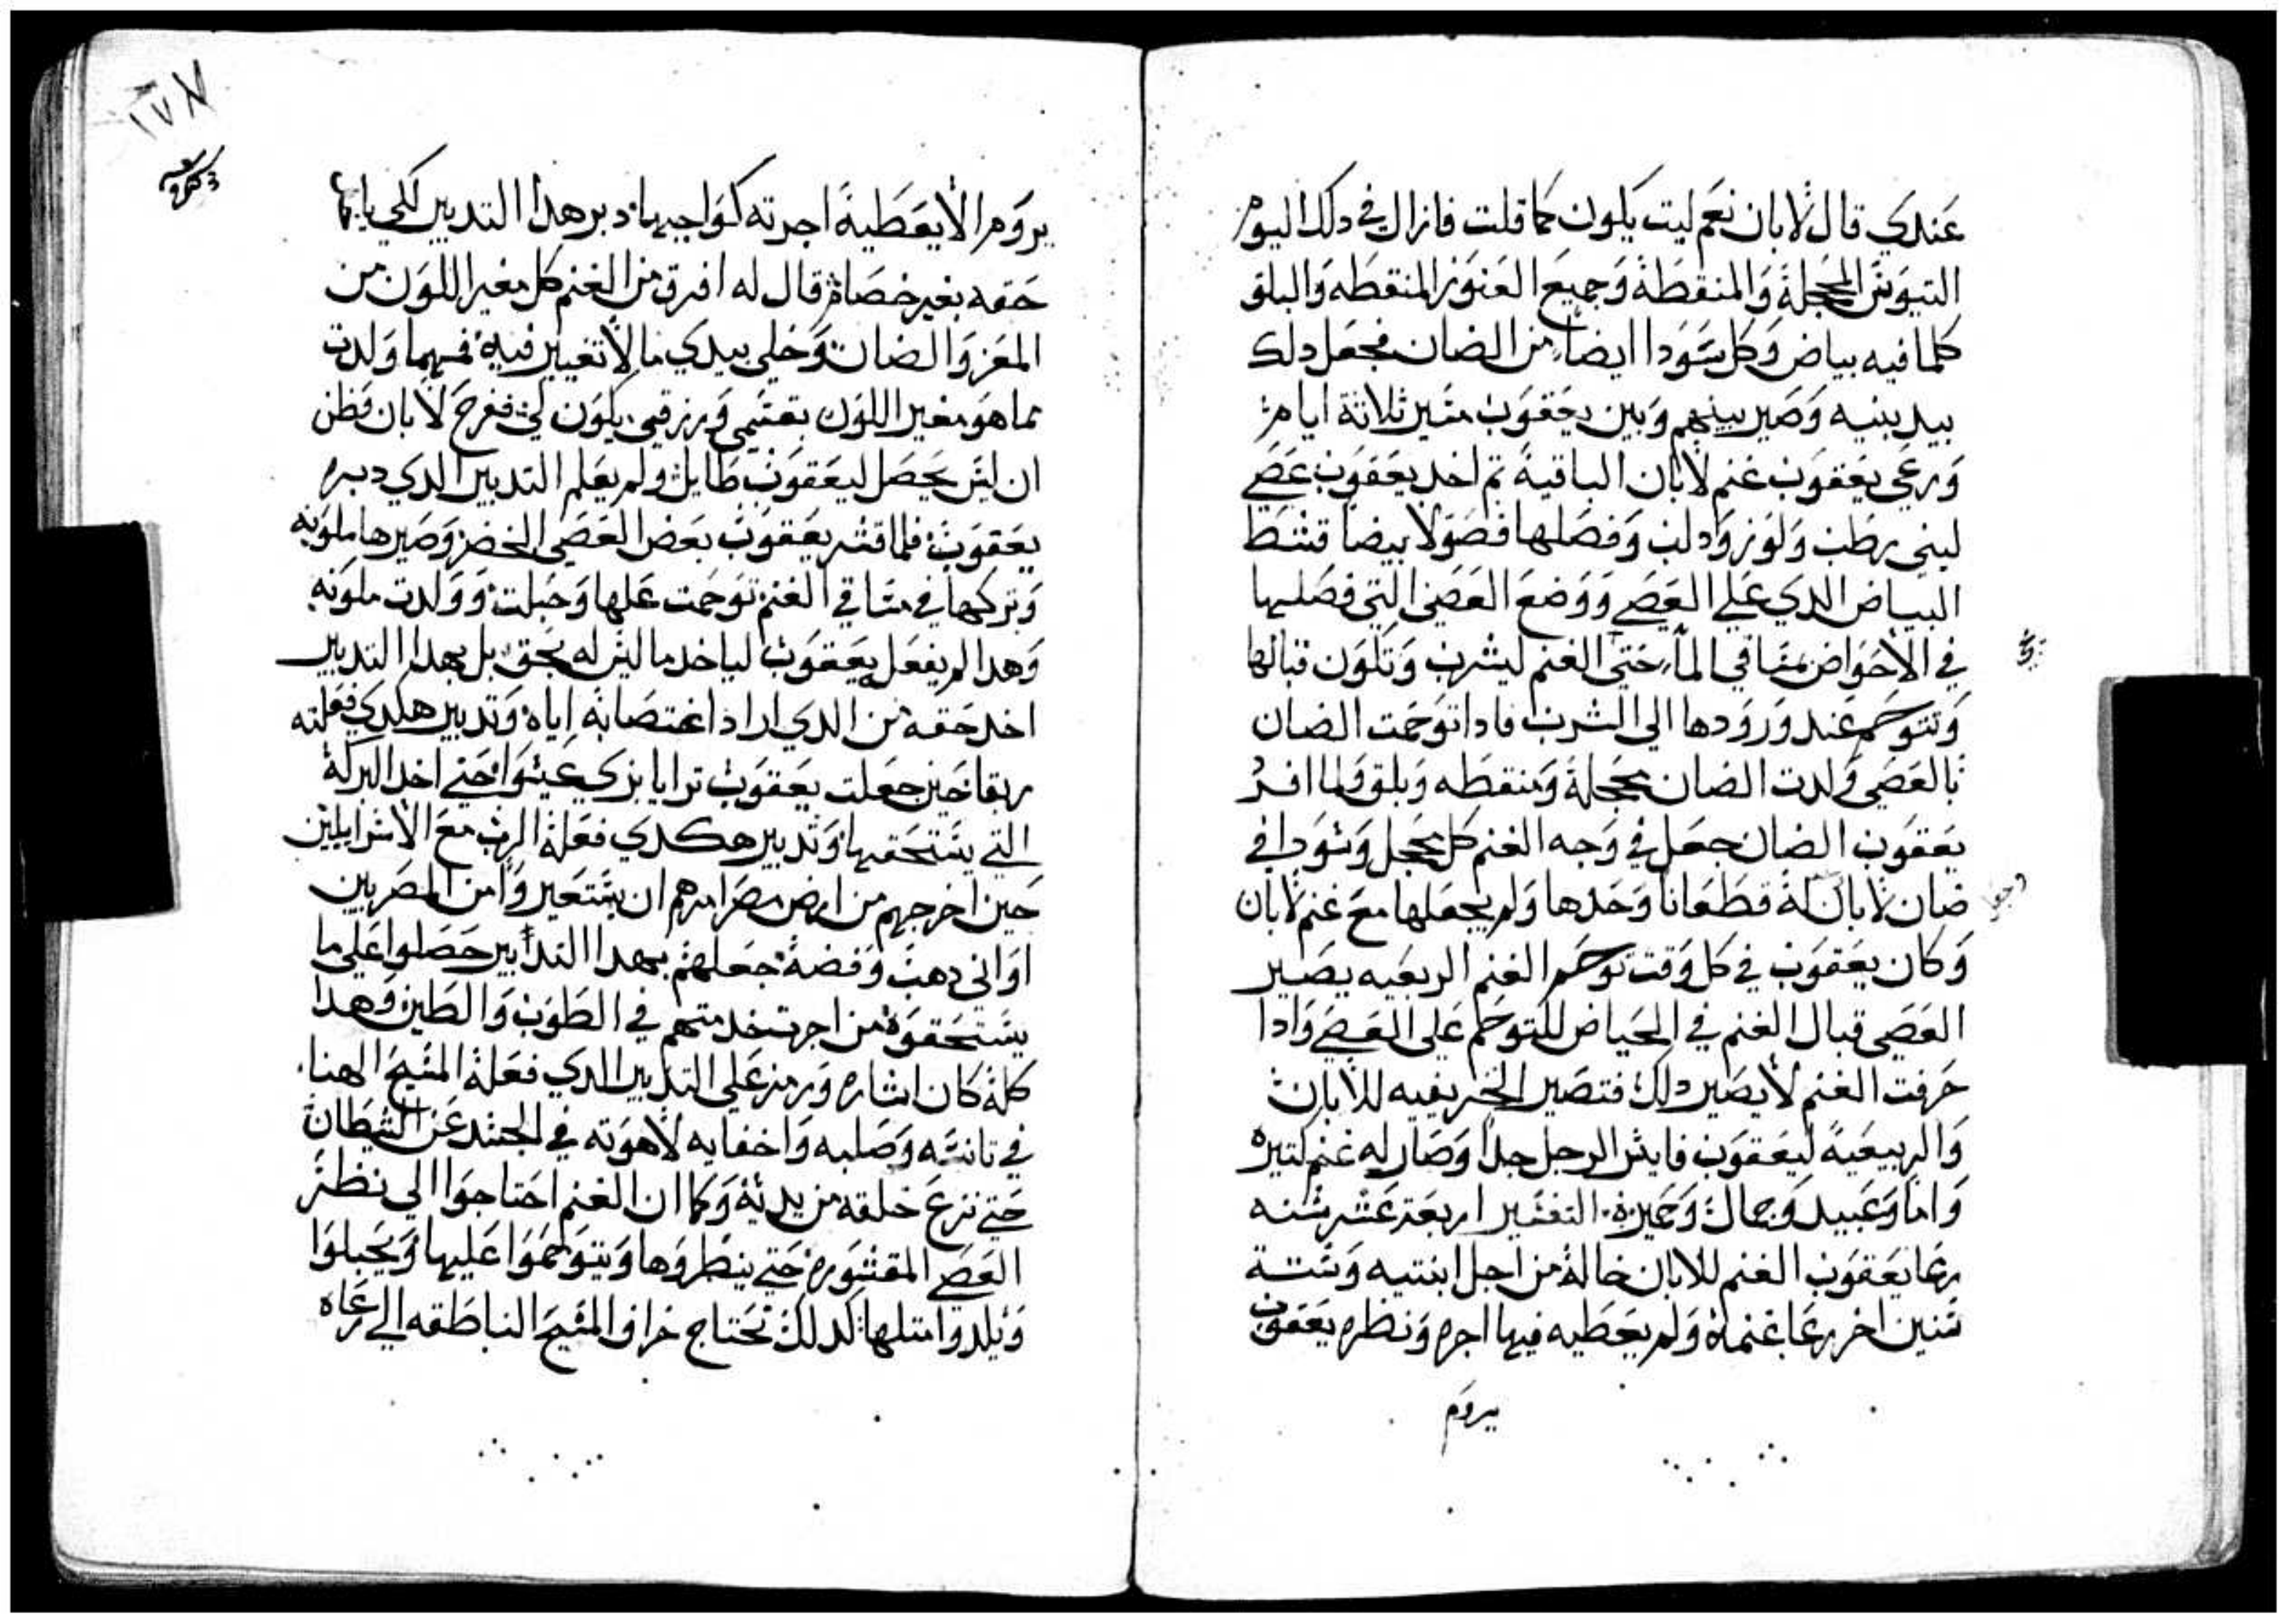 عندي قال لابان نعم ليت يكون كما قلت فازال في دلك اليوم
التيوس المحجلة والمنقطة وجميع العنوز المنقطه والبلق
كلما فيه بياض وكل سودا ايضا من الضان فجعل دلك
بيد بنيه وصير بينهم وبين يعقوب مسير ثلاتة ايام
ورعي يعقوب غنم لابان الباقية تم اخد يعقوب عصي
لبني رطب ولوز ودلب وفصلها فصولا بيضا قشط
البياض الدي علي العصي ووضع العصي التي فصليها
في الاحواض مساقي الما حتي الغنم ليشرب وتكون قبالها
وتتوحم عند ورودها الي الشرب فادا توحمت الضان
بالعصي ولدت الضان محجلة ومنقطه وبلق ولما افرد
يعقوب الضان جعل في وجه الغنم كل محجل وسودا في
ضان لابان له قطعانا وحدها ولم يجعلها مع غنم لابان
وكان يعقوب في كل وقت توحم الغنم الربعيه يصير
العصي قبال الغنم في الحياض للتوحم علي العصي وادا
خرفت الغنم لا يصير دلك فتصير الخريفيه للابان
والربيعية ليعقوب فايسر الرجل جدا وصار له غنم كتيره
واما وعبيد وجمال وحميرة التفسير اربعة عشر سنه
رعا يعقوب الغنم للابان خاله من اجل ابنتيه وستة
سنين اخر رعا غنمه ولم يعطيه فيها اجره ونظره يعقوب
يروم
١٧٨
يروم الا يعطية اجرته كواجبها دبر هدا التدبير لكي ياخد
حقه بغير خصام قال له افرق من الغنم كل مغير اللون من
المعز والضان وخلي بيدي ما لا تغيير فيه فمهما ولدت
مما هو مغير اللون بقسمي ورزقي يكون لي ففرح لابان وظن
ان ليس يحصل ليعقوب طايل ولم يعلم التدبير الدي دبره
يعقوب فلما قشر يعقوب بعض العصي الخضر وصيرها ملونه
وتركها في مساقي الغنم توحمت عليها وحبلت وولدت ملونه
وهدا لم يفعله يعقوب لياخد ما ليس له بحق بل بهدا التدبير
اخد حقه من الدي اراد اغتصابه اياه وتدبير هكدي فعلته
ربقا حين جعلت يعقوب ترايا بزي عيسوا حتي اخد البركة
التي يستحقها وتدبير هكدي فعله الرب مع الاسرايليين
حين اخرجهم من ارض مصر امرهم ان يستعيروا من المصريين
اواني دهب وفضة جعلهم بهدا التدابير حصلوا علي ما
يستحقوه من اجرت خدمتهم في الطوب والطين وهدا
كله كان اشاره ورمز علي التدبير الدي فعله المسيح الهنا
في تانسه وصلبه واخفايه لاهوته في الجسد عن الشيطان
حتي نزع خلقه من يديه وكما ان الغنم احتاجوا الي نظر
العصي المقشوره حتي ينظروها ويتوحموا عليها ويحبلوا
ويلدوا متلها كدلك تحتاج خراف المسيح الناطقه الي رعاه